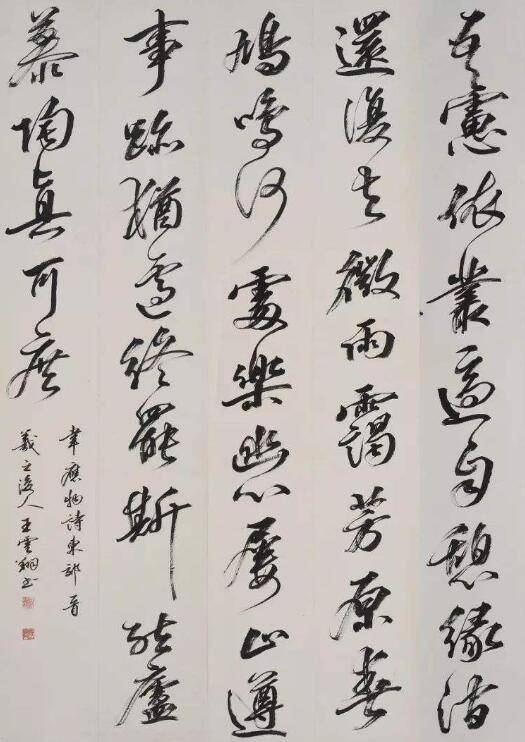 吾慮依叢適自憩緣澗
還復去微雨靄芳原春
鳩鳴何處樂幽心屢止遵
事跡猶遽終罷斯結廬
慕陶真可庶
韋應物詩東郊 晉
羲之後人王雲翔書